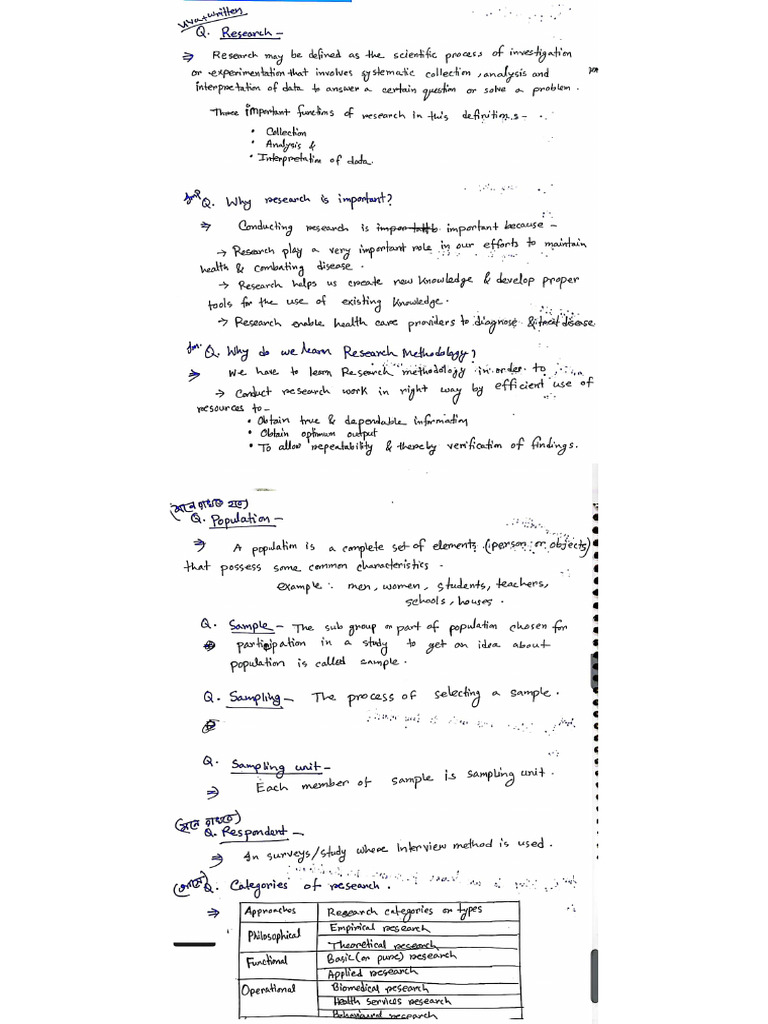 Viva + written
Q. Research -
⇒ Research may be defined as the scientific process of investigation
or experimentation that involves systematic collection, analysis and
interpretation of data to answer a certain question or solve a problem.
Three important functions of research in this definition.s -
• Collection
• Analysis &
• Interpretation of data.
Imp Q. Why research is important?
⇒ Conducting research is important because -
→ Research play a very important role in our efforts to maintain
health & combating disease.
→ Research helps us create new knowledge & develop proper
tools for the use of existing knowledge.
→ Research enable health care providers to diagnose & treat disease
Im. Q. Why do we learn Research Methodology?
⇒ We have to learn Research methodology in order to
→ Conduct research work in right way by efficient use of
resources to -
• Obtain true & dependable information
• Obtain optimum output
• To allow repeatability & thereby verification of findings.
Q. Population -
⇒ A population is a complete set of elements (person or objects)
that possess some common characteristics.
example: men, women, students, teachers,
schools, houses.
Q. Sample - The sub group or part of population chosen for
participation in a study to get an idea about
population is called sample.
Q. Sampling - The process of selecting a sample.
Q. Sampling unit -
⇒ Each member of sample is sampling unit.
Q. Respondent -
⇒ In surveys/study where Interview method is used.
Q. Categories of research.
⇒ Approaches Research categories or types
Philosophical Empirical research
Theoretical research
Functional Basic (or pure) research
Applied research
Operational Biomedical research
Health Services research
Behavioural research